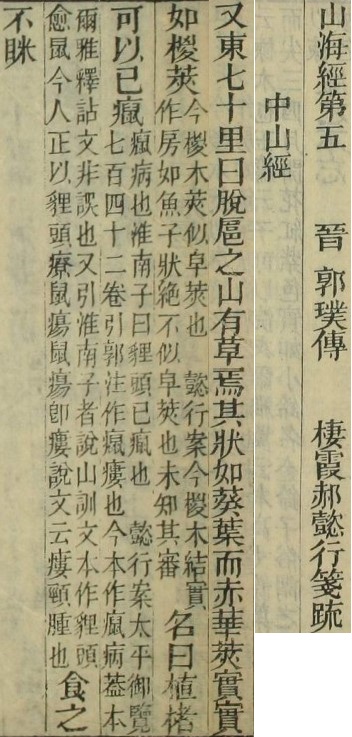 山海經第五 晉 郭璞傳 棲霞郝懿行箋疏
中山經
又東七十里曰脫扈之山有草焉其狀如葵葉而赤華莢實實
如椶莢
今椶木莢似皁莢也 懿行案今椶木結實
作房如魚子狀絶不似皁莢也未知其審
名曰植楮
可以已癙
癙病也淮南子曰貍頭已癙也 懿行案太平御覽
七百四十二卷引郭注作癙瘻也今本作癙病葢本
爾雅釋詁文非誤也又引淮南子者說山訓文本作貍頭
愈鼠今人正以貍頭療鼠瘍鼠瘍卽瘻說文云瘻頸腫也
食之
不眯